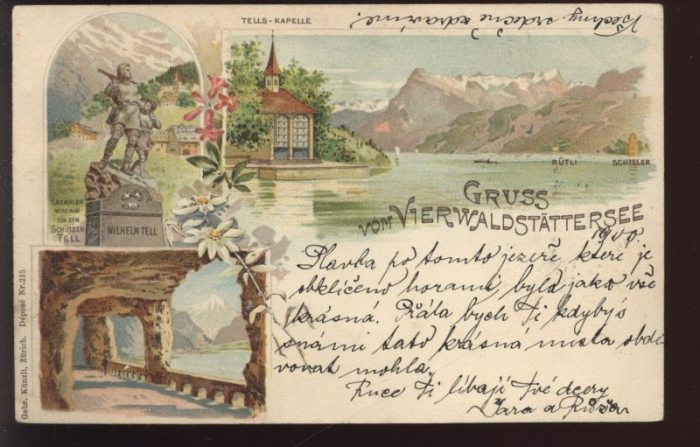 TELLS-KAPELLE
Všechny srdečně zdravíme.
ERZÄHLEN
WIRD MAN
VON DEM
SCHÜTZEN
TELL
1307
WILHELM TELL
RÜTLI SCHILLER
GRUSS
VOM VIERWALDSTÄTTERSEE
1900
Plavba po tomto jezeře, kteri je
obklíčeno horami, byla jako vše
krásná. Přála bych Ti kdybys
s námi tato krásna mista obdi
vovat mohla.
Ruce Ti líbají Tvé dcery
a Růža
Gebr. Künzli, Zürich. Déposé Nr. 215